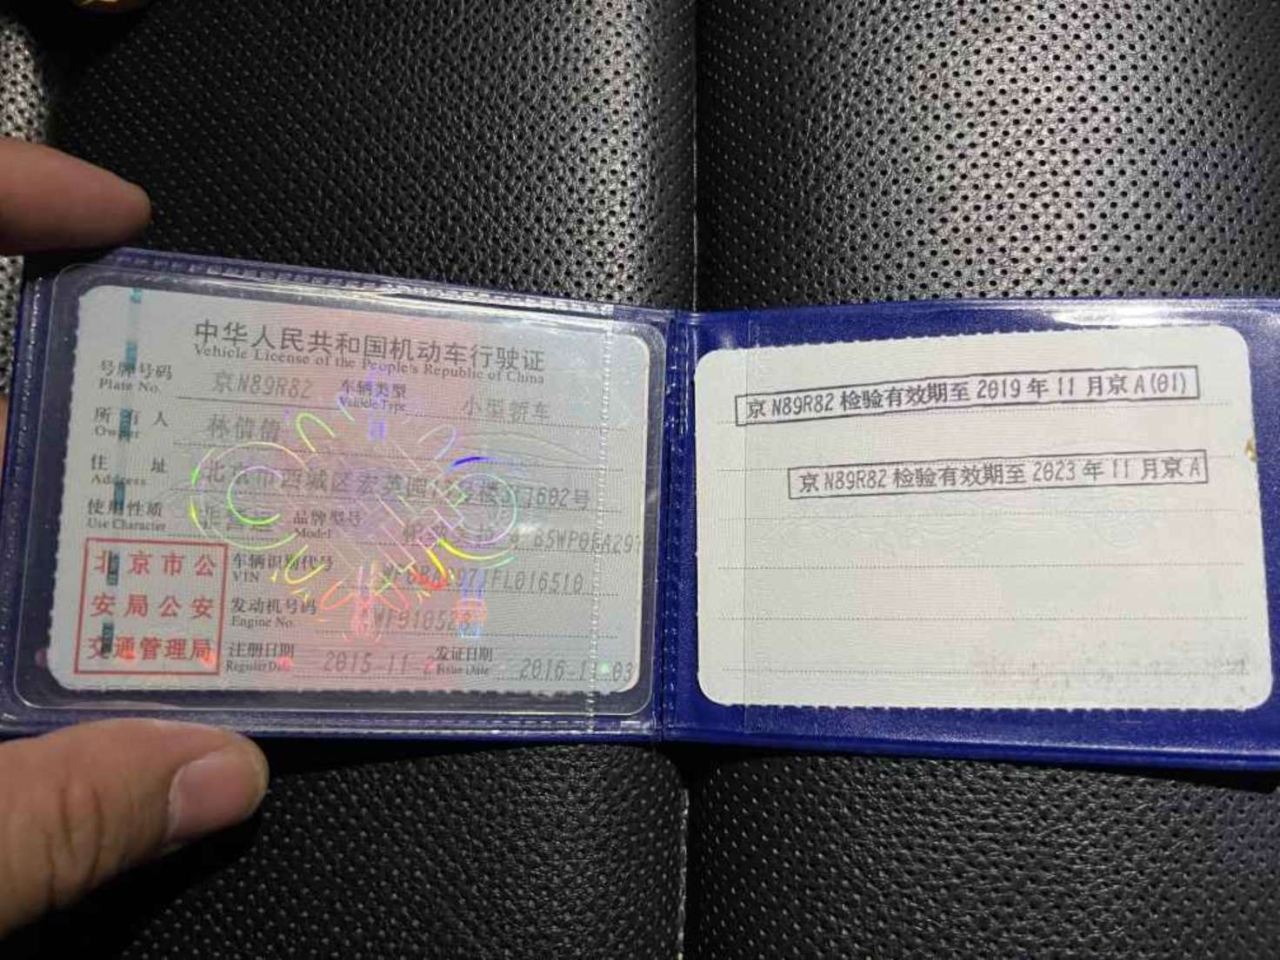 中华人民共和国机动车行驶证
Vehicle License of the People's Republic of China
号牌号码 京N89R82 车辆类型 小型轿车
Plate No. Vehicle Type
所有人 林倩倩
Owner
住址 北京市西城区宏英园 602号
Address
使用性质 非营运 品牌型号
Use Character Model
车辆识别代号
VIN
发动机号码
Engine No.
注册日期 2015-11-2 发证日期 2016-11-03
Register Date Issue Date
北京市公
安局公安
交通管理局
京N89R82检验有效期至2019年11月京A(01)
京N89R82检验有效期至2023年11月京A